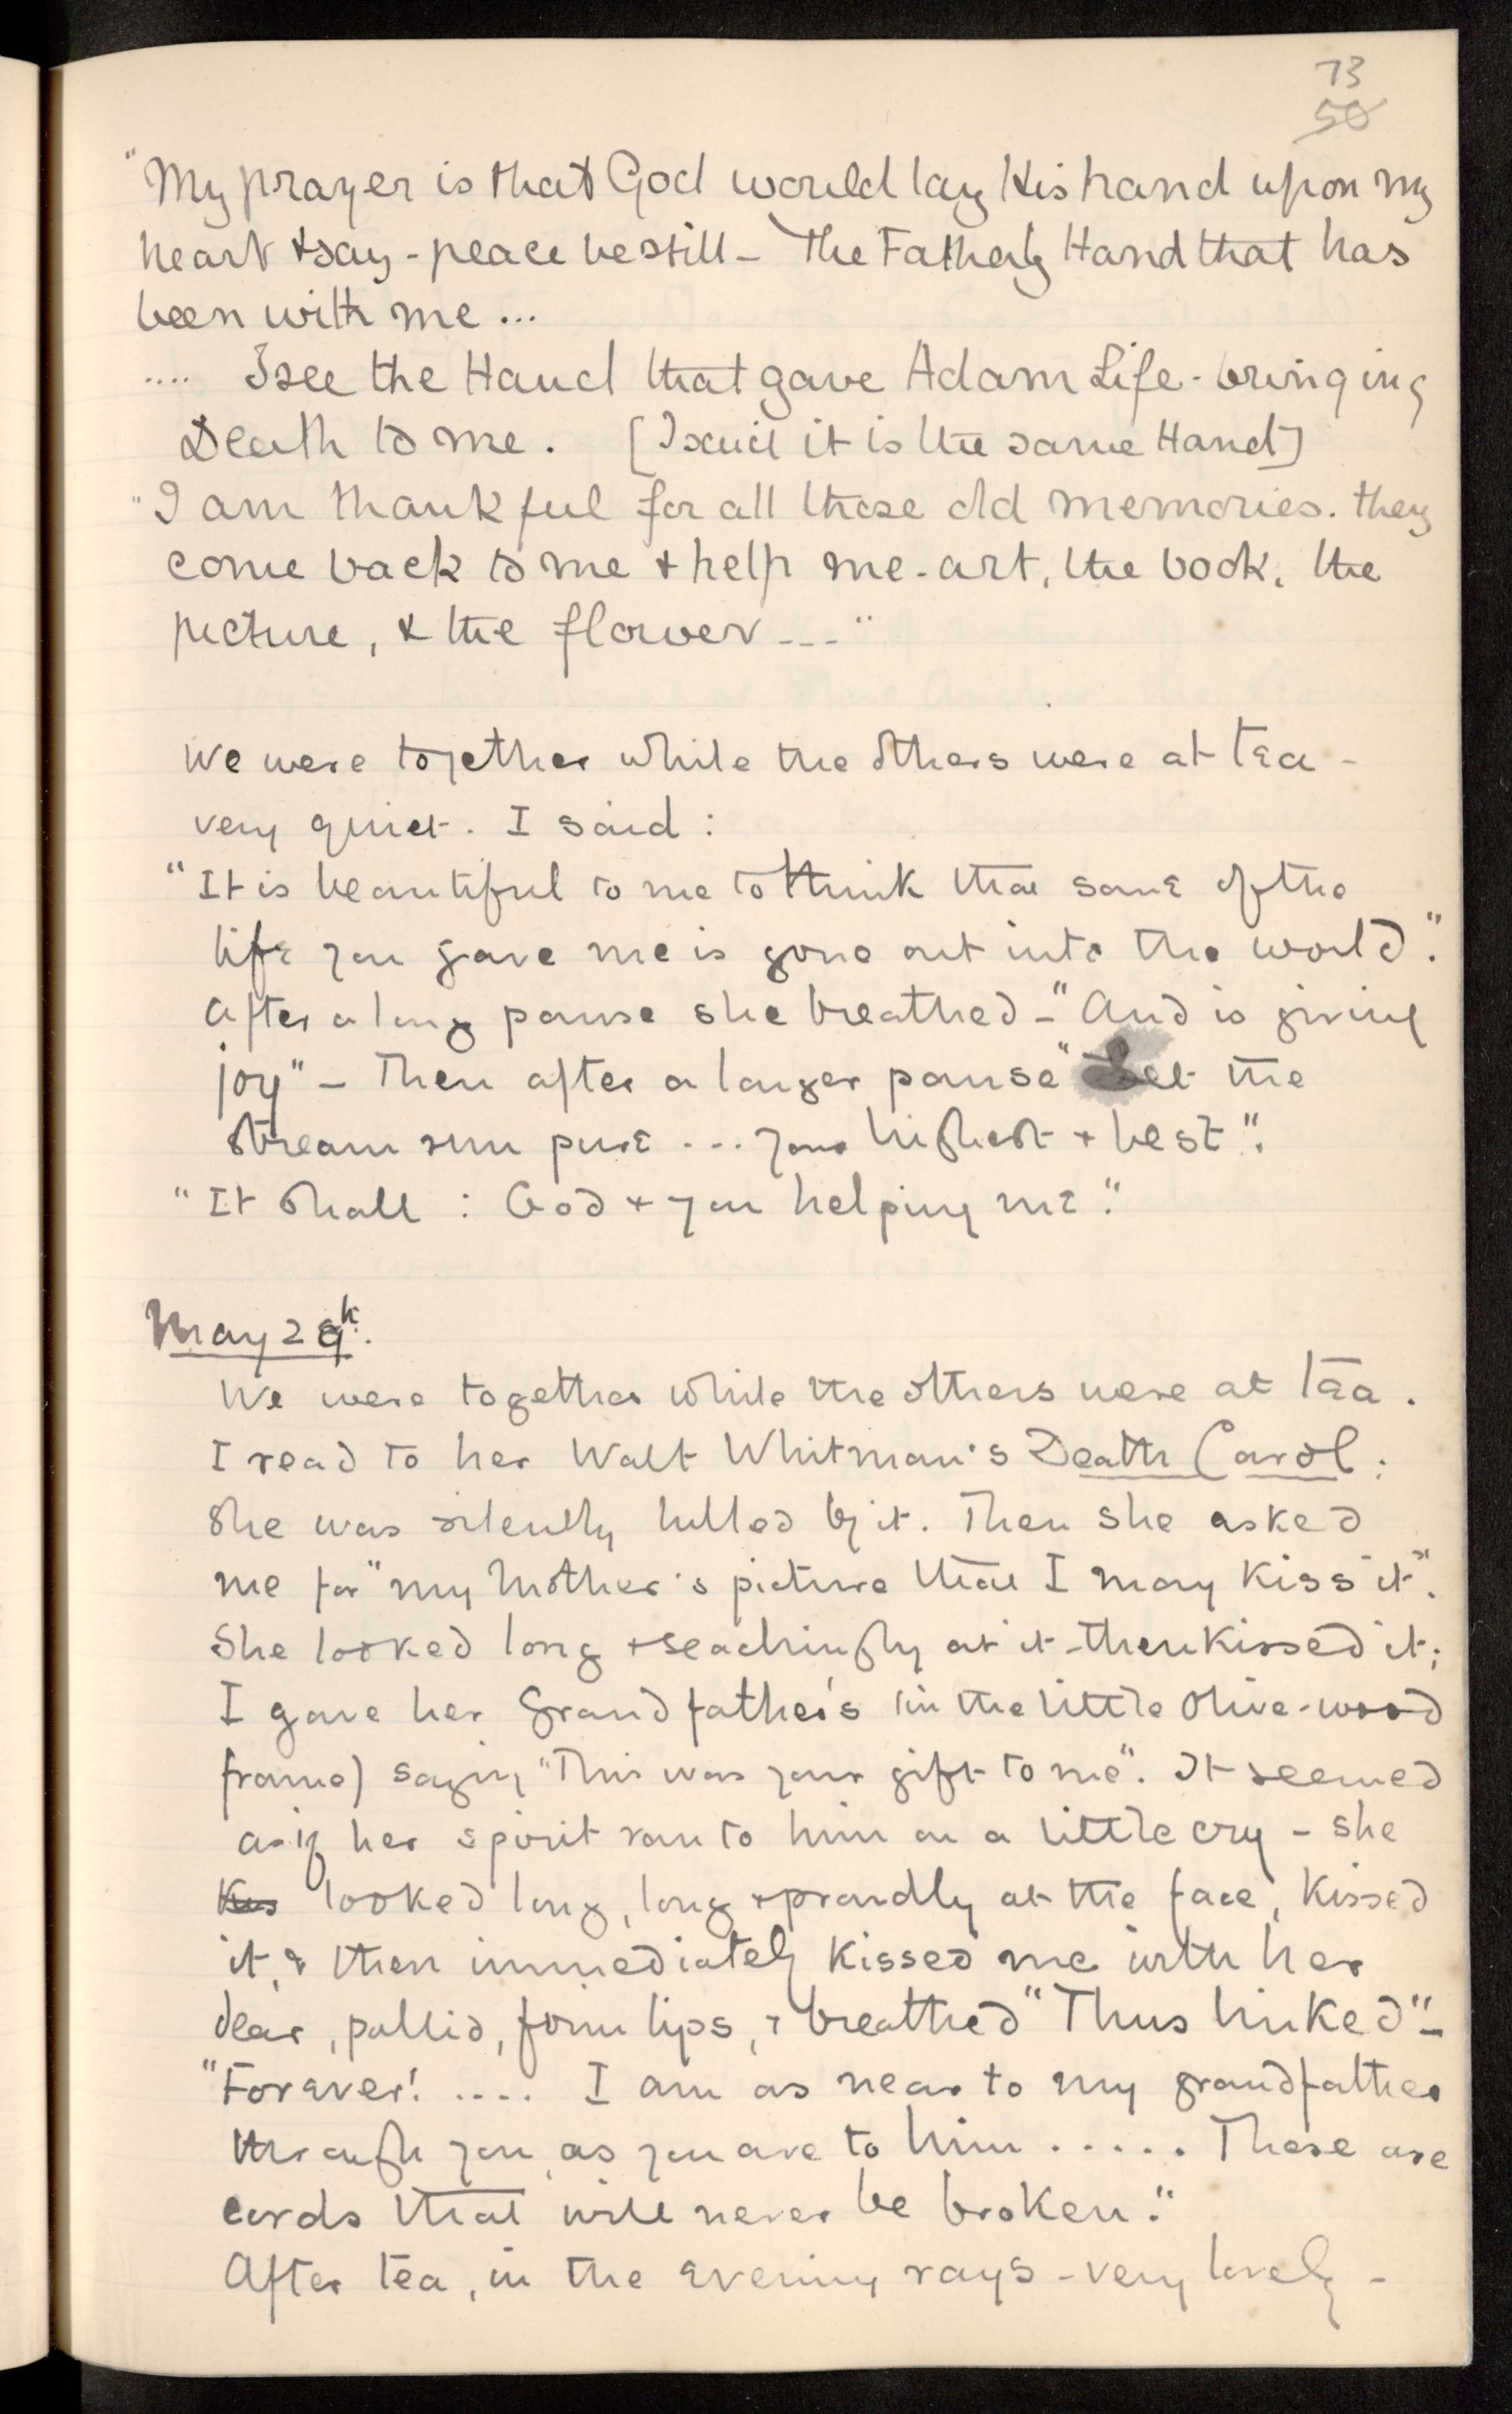 73
50
"My prayer is that God would lay His hand upon my
heart & say - peace be still - The Fatherly Hand that has
been with me ...
.... I see the Hand that gave Adam Life - bringing
Death to me. [I said it is the same Hand]
"I am thankful for all those old memories. they
come back to me & help me - art, the book, the
picture, & the flower ---"
We were together while the others were at tea -
very quiet. I said:
"It is beautiful to me to think that some of the
life you gave me is gone out into the world".
After a long pause she breathed - "And is giving
joy" - Then after a longer pause "Let the
stream run pure ... your highest & best".
"It shall: God & you helping me".
May 29th.
We were together while the others were at tea.
I read to her Walt Whitman's Death Carol:
She was silently lulled by it. Then she asked
me for "my Mother's picture that I may kiss it".
She looked long & seachingly at it - then kissed it;
I gave her Grandfather's (in the little olive-wood
frame) saying "This was your gift to me". It seemed
as if her spirit ran to him on a little cry - she
Kis looked long, long & proudly at the face, kissed
it, & then immediately kissed me with her
dear, pallid, firm lips, & breathed "Thus linked" -
"Forever! .... I am as near to my grandfather
through you, as you are to him ..... These are
cords that will never be broken."
After tea, in the evening rays - very lovely -